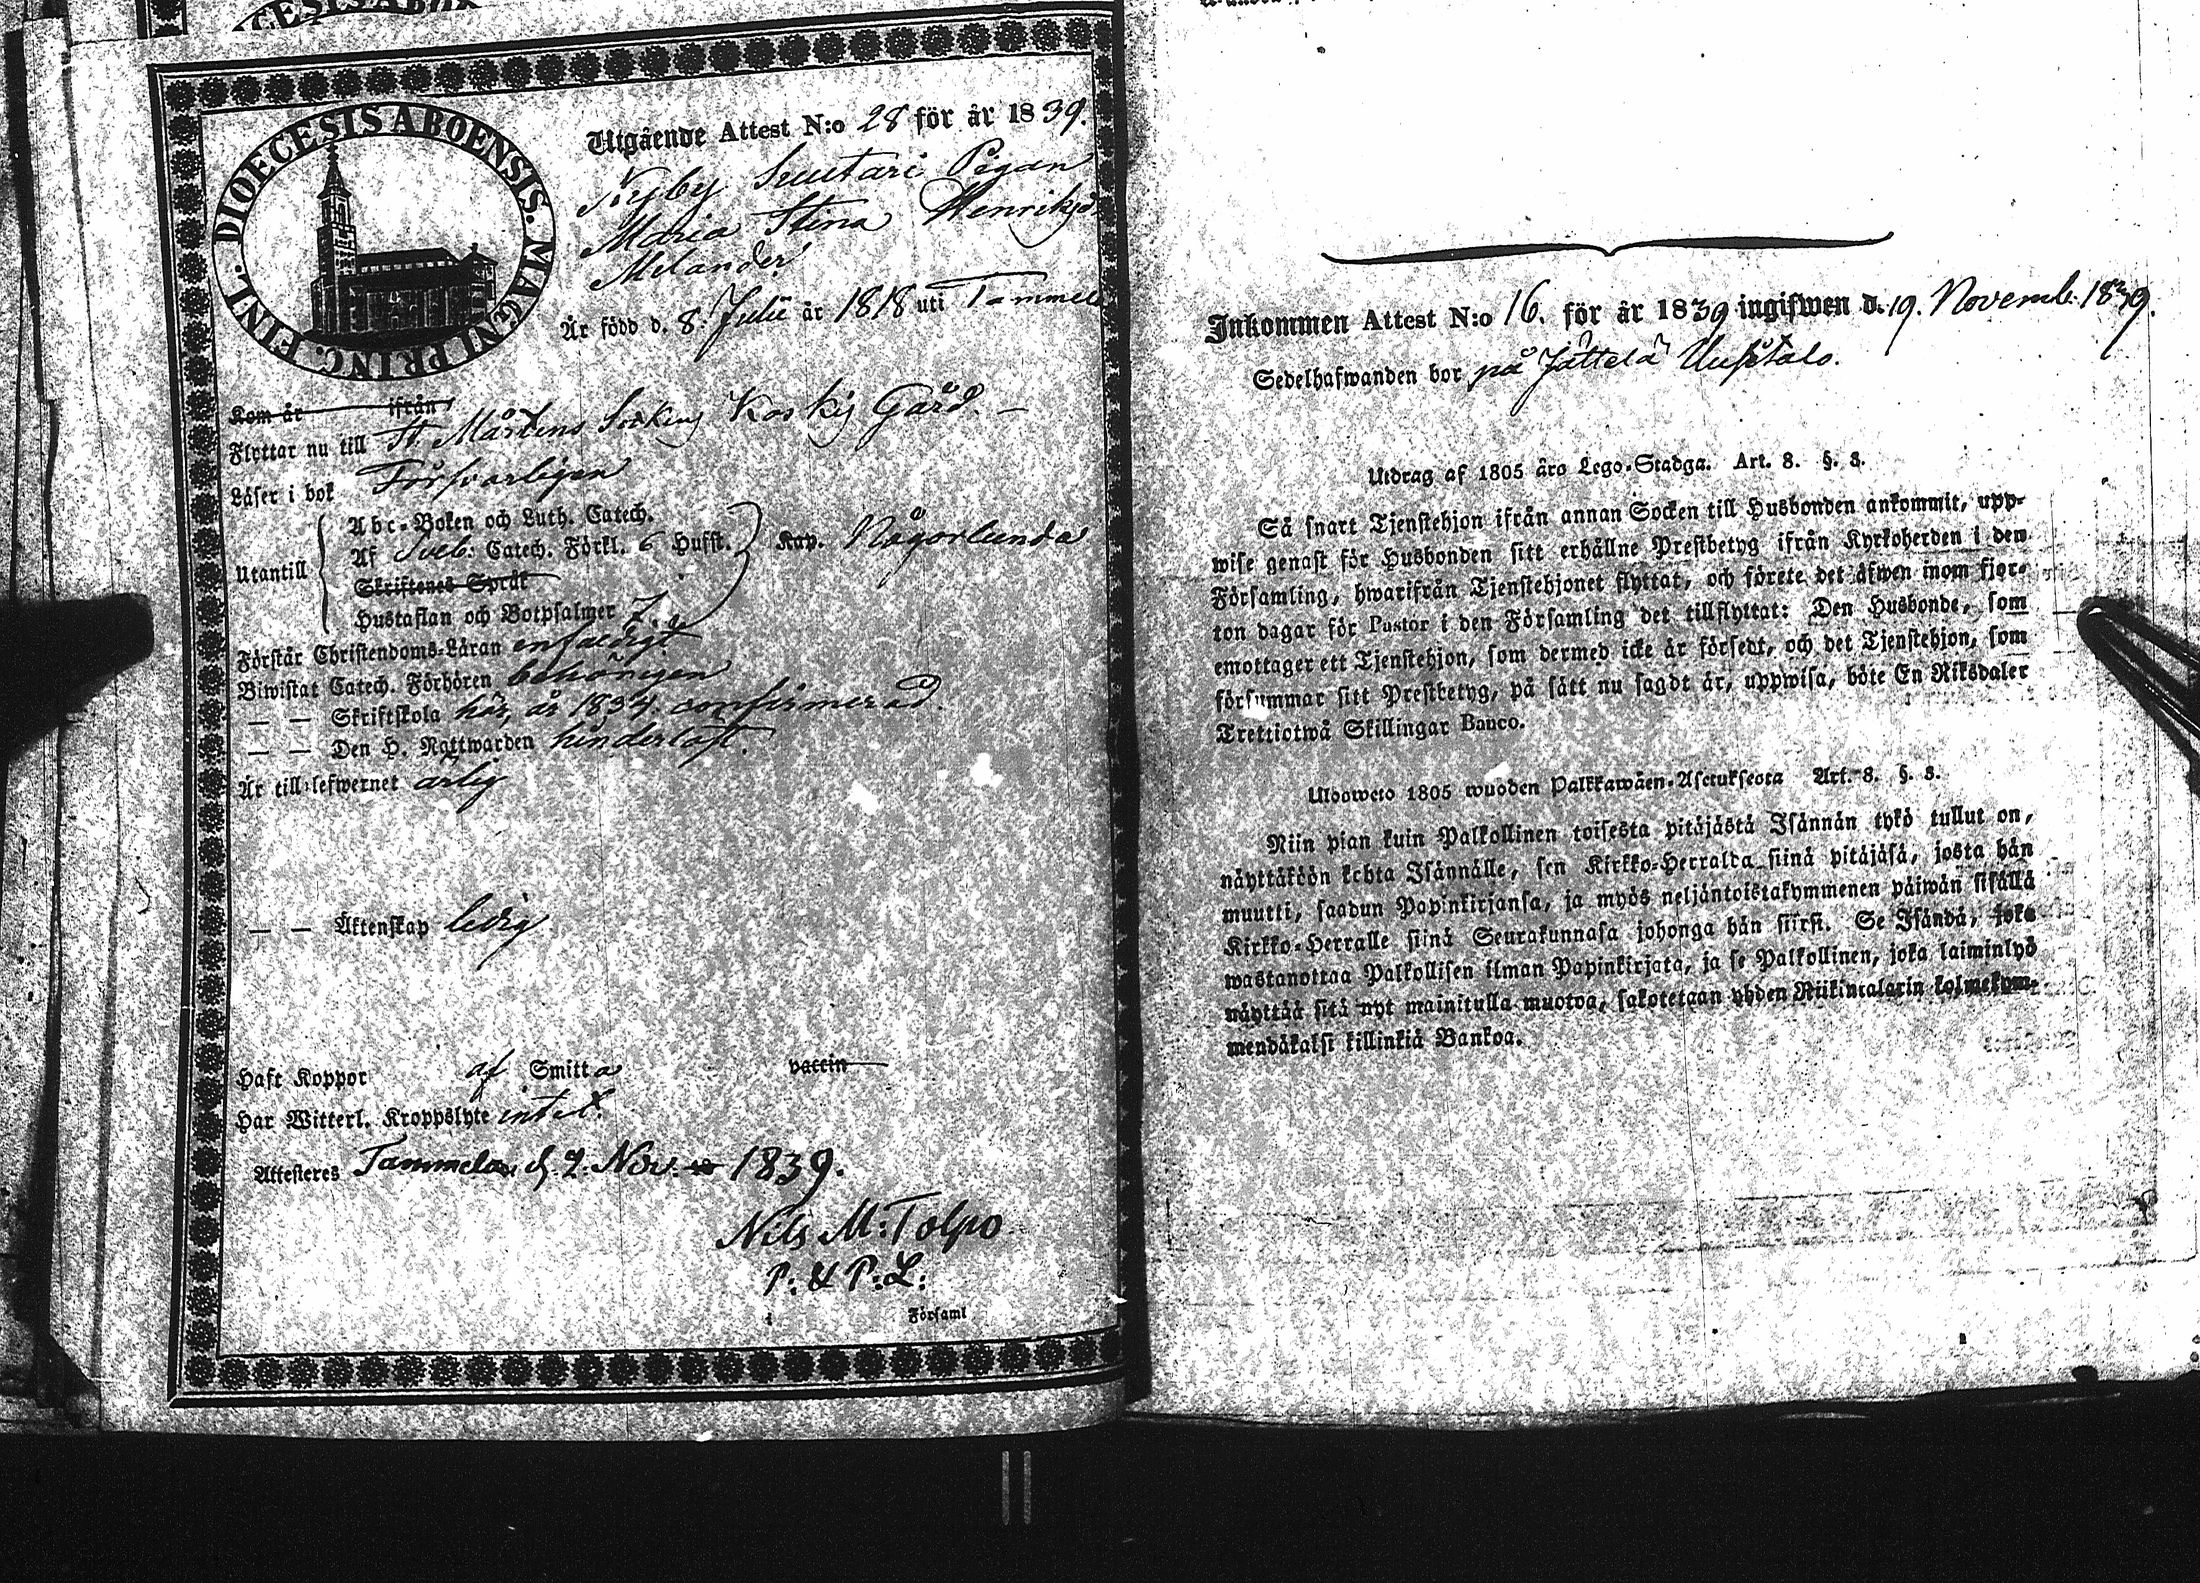 DIOECESIS ABOENSIS. MAGNI PRINC. FINL.
Utgående Attest N:o 28 för år 1839.
Nyby Suutari Pigan
Maria Stina Henriksd:
Melander
Är född d. 8. Julii år 1818 uti Tammela
Kom år ifrån
Flyttar nu till St Mårtens Sockn Koskis Gård. —
Läser i bok Försvarligen
Utantill
Abc-Boken och Luth. Catech.
Af Sveb: Catech. Förkl. 6 Hufst. Kap. Någorlunda
Skriftenes Språk
Hustaflan och Botpsalmer 7.
Förstår Christendoms-Läran enfaldigt
Biwistat Catech. Förhören behörigen
— — Skriftskola här, år 1834. confirmerad.
— — Den H. Nattwarden hinderlöst.
Är till lefwernet ärlig
— — Äktenskap ledig
Haft Koppor af Smitta vaccin
Har Witterl. Kroppslyte intet
Attesteres Tammela, d. 7. Nov. 18 1839.
Nils M: Tolpo
P: & P: L:
i Församl
Inkommen Attest N:o 16. för år 1839 ingifwen d. 19. Novemb. 1839.
Sedelhafwanden bor på Jättelä Uusitalo.
Utdrag af 1805 års Lego-Stadga. Art. 8. §. 3.
Så snart Tjenstehjon ifrån annan Socken till Husbonden ankommit, upp-
wise genast för Husbonden sitt erhållne Prestbetyg ifrån Kyrkoherden i den
Församling, hwarifrån Tjenstehjonet flyttat, och förete det äfwen inom fjor-
ton dagar för Pastor i den Församling det tillflyttat: Den Husbonde, som
emottager ett Tjenstehjon, som dermed icke är försedt, och det Tjenstehjon, som
försummar sitt Prestbetyg, på sätt nu sagdt är, uppwisa, böte En Riksdaler
Trettiotwå Skillingar Banco.
Ulosweto 1805 wuoden Palkkawäen-Asetuksesta Art. 8. §. 3.
Niin pian kuin Palkollinen toisesta pitäjästä Isännän tykö tullut on,
näyttäköön kohta Isännälle, sen Kirkko-Herralda siinä pitäjäsä, josta hän
muutti, saadun Papinkirjansa, ja myös neljäntoistakymmenen päiwän sisällä
Kirkko-Herralle siinä Seurakunnasa johonga hän siirsi. Se Isändä, joka
wastanottaa Palkollisen ilman Papinkirjata, ja se Palkollinen, joka laiminlyö
näyttää sitä nyt mainitulla muotoa, sakotetaan yhden Riikintalarin kolmekym-
mendäkaksi killinkiä Bankoa.